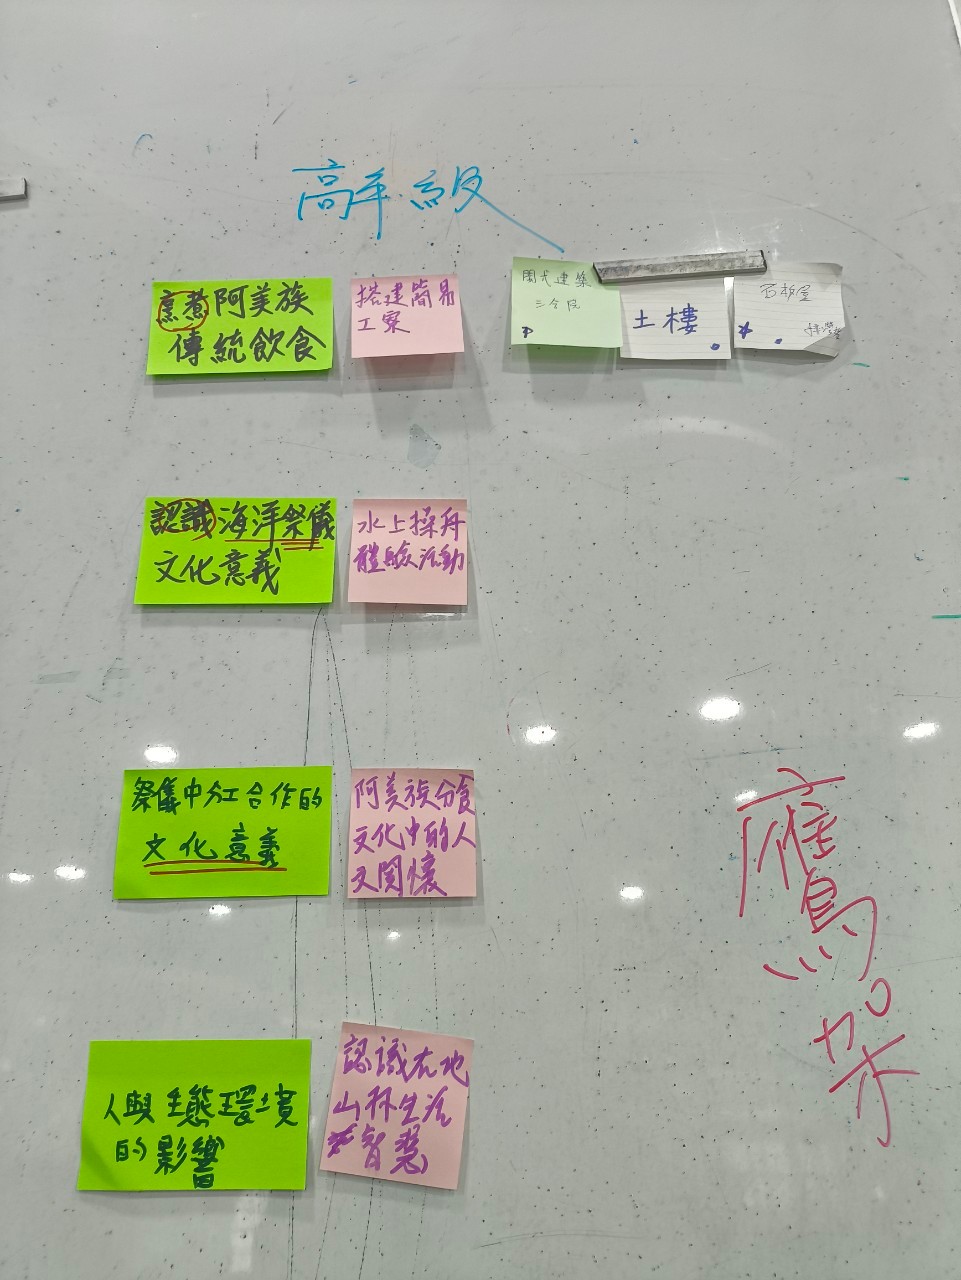 高年級
烹煮阿美族
傳統飲食
搭建簡易
工寮
閩式建築
三合院
土樓
石板屋
認識海洋祭儀
文化意義
水上操舟
體驗活動
祭儀中分工合作的
文化意義
阿美族分食
文化中的人
文関懷
人與生態環境
的影響
認識在地
山林生活
智慧
鷹架